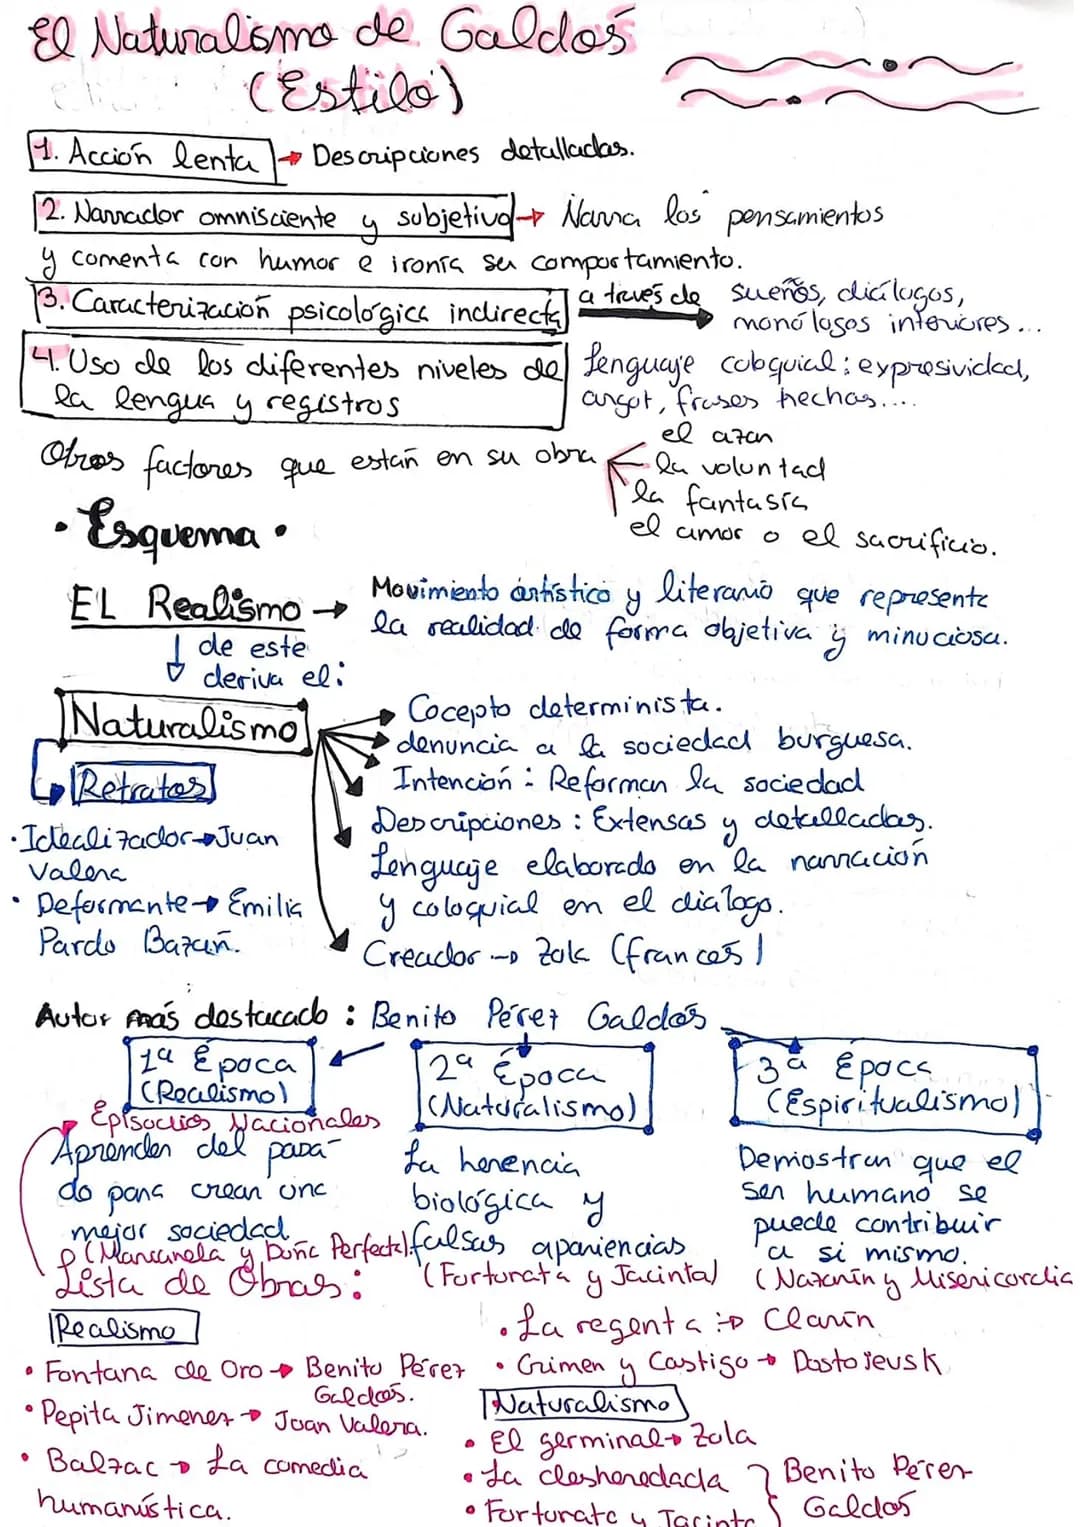 El Naturalismo de Galdós
(Estilo)
1. Acción lenta → Descripciones detalladas.
2. Narrador omnisciente y subjetivo → Narra los pensamientos
y comenta con humor e ironía su comportamiento.
3. Caracterización psicológica indirecta a través de sueños, diálogos,
monólogos interiores...
4. Uso de los diferentes niveles de
la lengua y registros
Lenguaje coloquial: expresividad,
argot, frases hechas....
Otros factores que están en su obra
el azar
la voluntad
la fantasía
el amor o el sacrificio.
· Esquema ·
EL Realismo → Movimiento artístico y literario que representa
la realidad de forma objetiva y minuciosa.
de este
deriva el:
Naturalismo
Cocepto determinista.
denuncia a la sociedad burguesa.
Intención: Reformar la sociedad
Descripciones: Extensas y detalladas.
Lenguaje elaborado en la narración
y coloquial en el diálogo.
Creador → Zola (francés)
Retratos
· Idealizador → Juan
Valera
· Deformante → Emilia
Pardo Bazán.
Autor más destacado: Benito Pérez Galdós
1ª Época
(Realismo)
Episodios Nacionales
Aprender del pasa-
do para crear una
mejor sociedad
(Marianela y Doña Perfecta)
2ª Época
(Naturalismo)
La herencia
biológica y
falsas apariencias
(Fortunata y Jacinta)
3ª Época
(Espiritualismo)
Demostrar que el
ser humano se
puede contribuir
a si mismo.
(Nazarín y Misericordia
Lista de Obras:
Realismo
· Fontana de Oro → Benito Pérez
Galdós.
· Pepita Jimenez → Juan Valera.
· Balzac → La comedia
humanística.
· La regenta → Clarín
· Crimen y Castigo → Dostojeusk
Naturalismo
· El germinal → Zola
· La desheredada
· Fortunata y Jacinta
Benito Pérez
Galdós